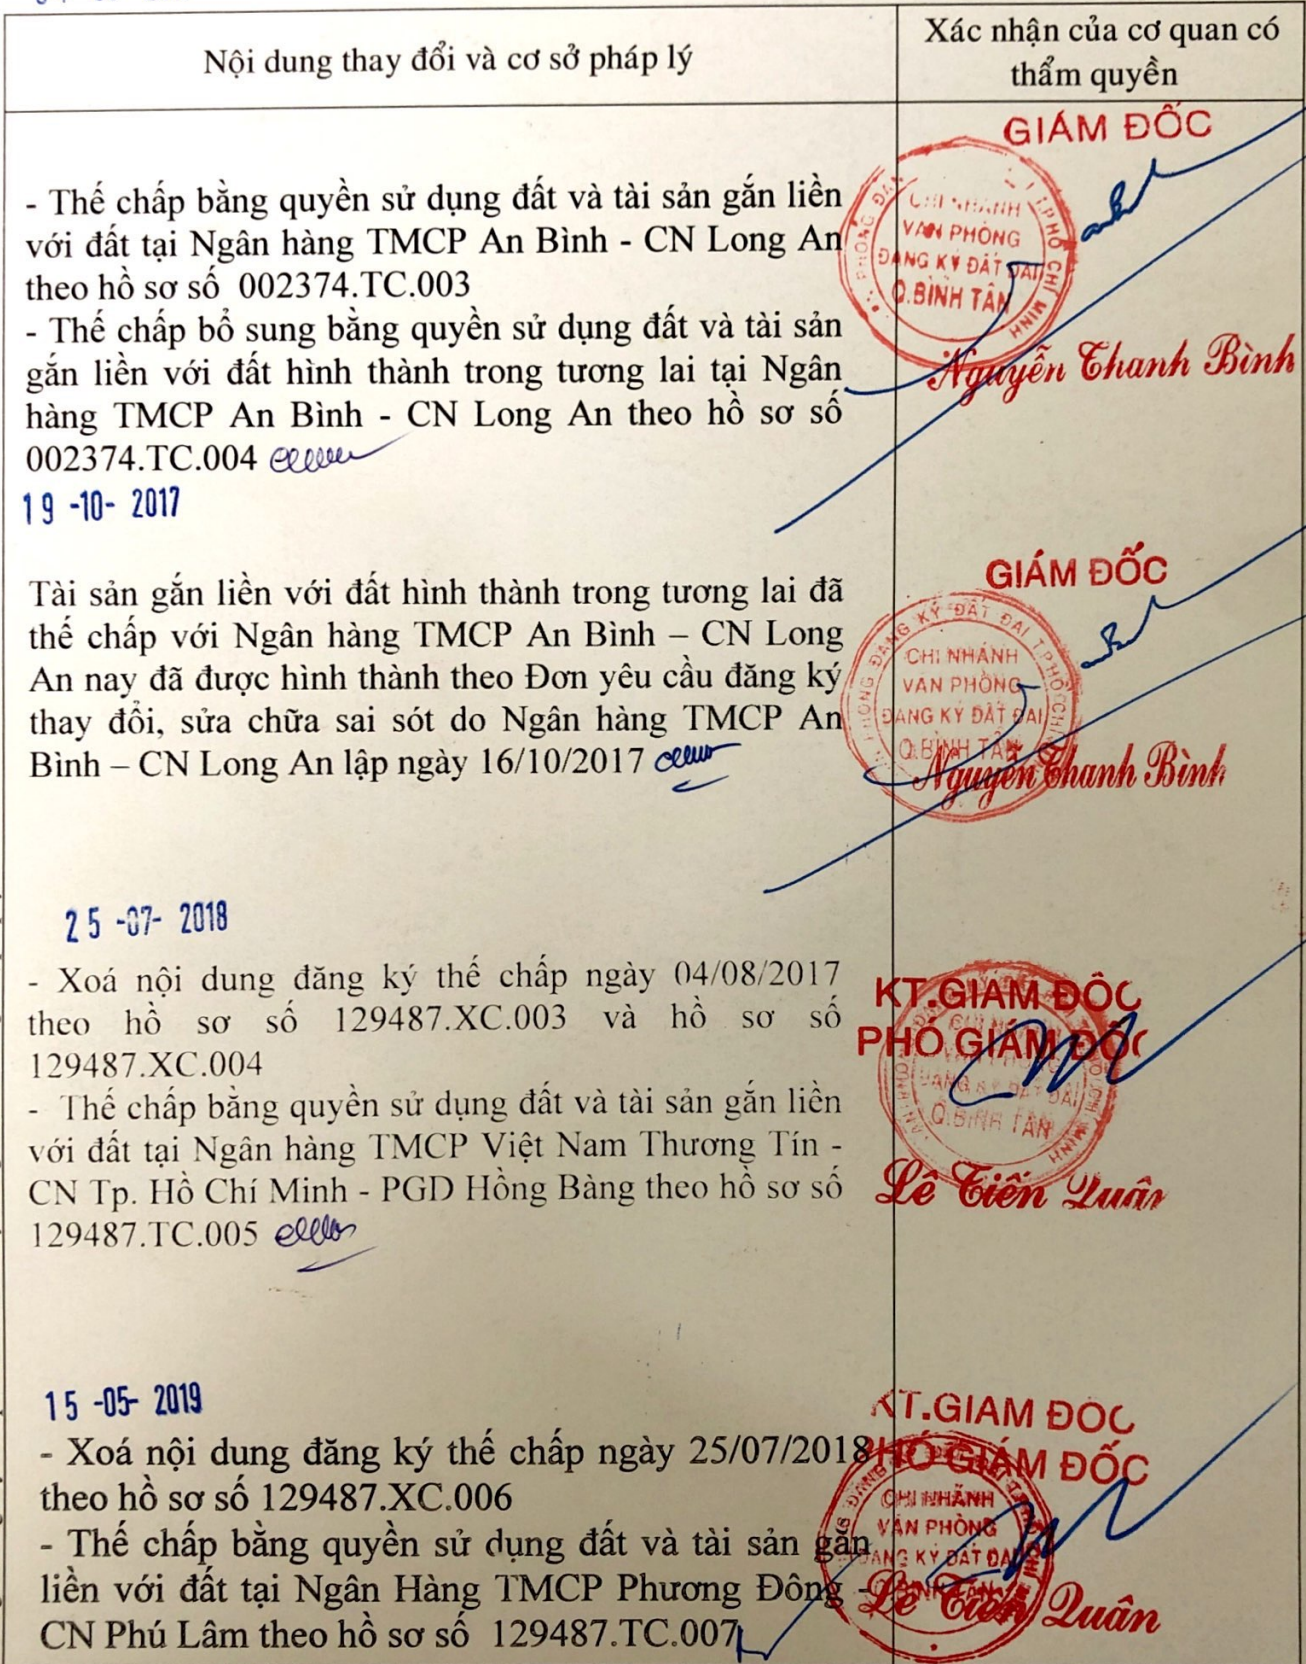 Nội dung thay đổi và cơ sở pháp lý
Xác nhận của cơ quan có
thẩm quyền
- Thế chấp bằng quyền sử dụng đất và tài sản gắn liền
với đất tại Ngân hàng TMCP An Bình - CN Long An
theo hồ sơ số 002374.TC.003
- Thế chấp bổ sung bằng quyền sử dụng đất và tài sản
gắn liền với đất hình thành trong tương lai tại Ngân
hàng TMCP An Bình - CN Long An theo hồ sơ số
002374.TC.004
GIÁM ĐỐC
CHI NHÁNH
VĂN PHÒNG
ĐĂNG KÝ ĐẤT ĐAI
Q.BÌNH TÂN
Nguyễn Thanh Bình
19 -10- 2017
Tài sản gắn liền với đất hình thành trong tương lai đã
thế chấp với Ngân hàng TMCP An Bình – CN Long
An nay đã được hình thành theo Đơn yêu cầu đăng ký
thay đổi, sửa chữa sai sót do Ngân hàng TMCP An
Bình – CN Long An lập ngày 16/10/2017
GIÁM ĐỐC
CHI NHÁNH
VĂN PHÒNG
ĐĂNG KÝ ĐẤT ĐAI
Q.BÌNH TÂN
Nguyễn Thanh Bình
25 -07- 2018
- Xoá nội dung đăng ký thế chấp ngày 04/08/2017
theo hồ sơ số 129487.XC.003 và hồ sơ số
129487.XC.004
- Thế chấp bằng quyền sử dụng đất và tài sản gắn liền
với đất tại Ngân hàng TMCP Việt Nam Thương Tín -
CN Tp. Hồ Chí Minh - PGD Hồng Bàng theo hồ sơ số
129487.TC.005
KT.GIÁM ĐỐC
PHÓ GIÁM ĐỐC
CHI NHÁNH
VĂN PHÒNG
ĐĂNG KÝ ĐẤT ĐAI
Q.BÌNH TÂN
Lê Tiến Quân
15 -05- 2019
- Xoá nội dung đăng ký thế chấp ngày 25/07/2018
theo hồ sơ số 129487.XC.006
- Thế chấp bằng quyền sử dụng đất và tài sản gắn
liền với đất tại Ngân Hàng TMCP Phương Đông -
CN Phú Lâm theo hồ sơ số 129487.TC.007
KT.GIÁM ĐỐC
PHÓ GIÁM ĐỐC
CHI NHÁNH
VĂN PHÒNG
ĐĂNG KÝ ĐẤT ĐAI
Lê Tiến Quân